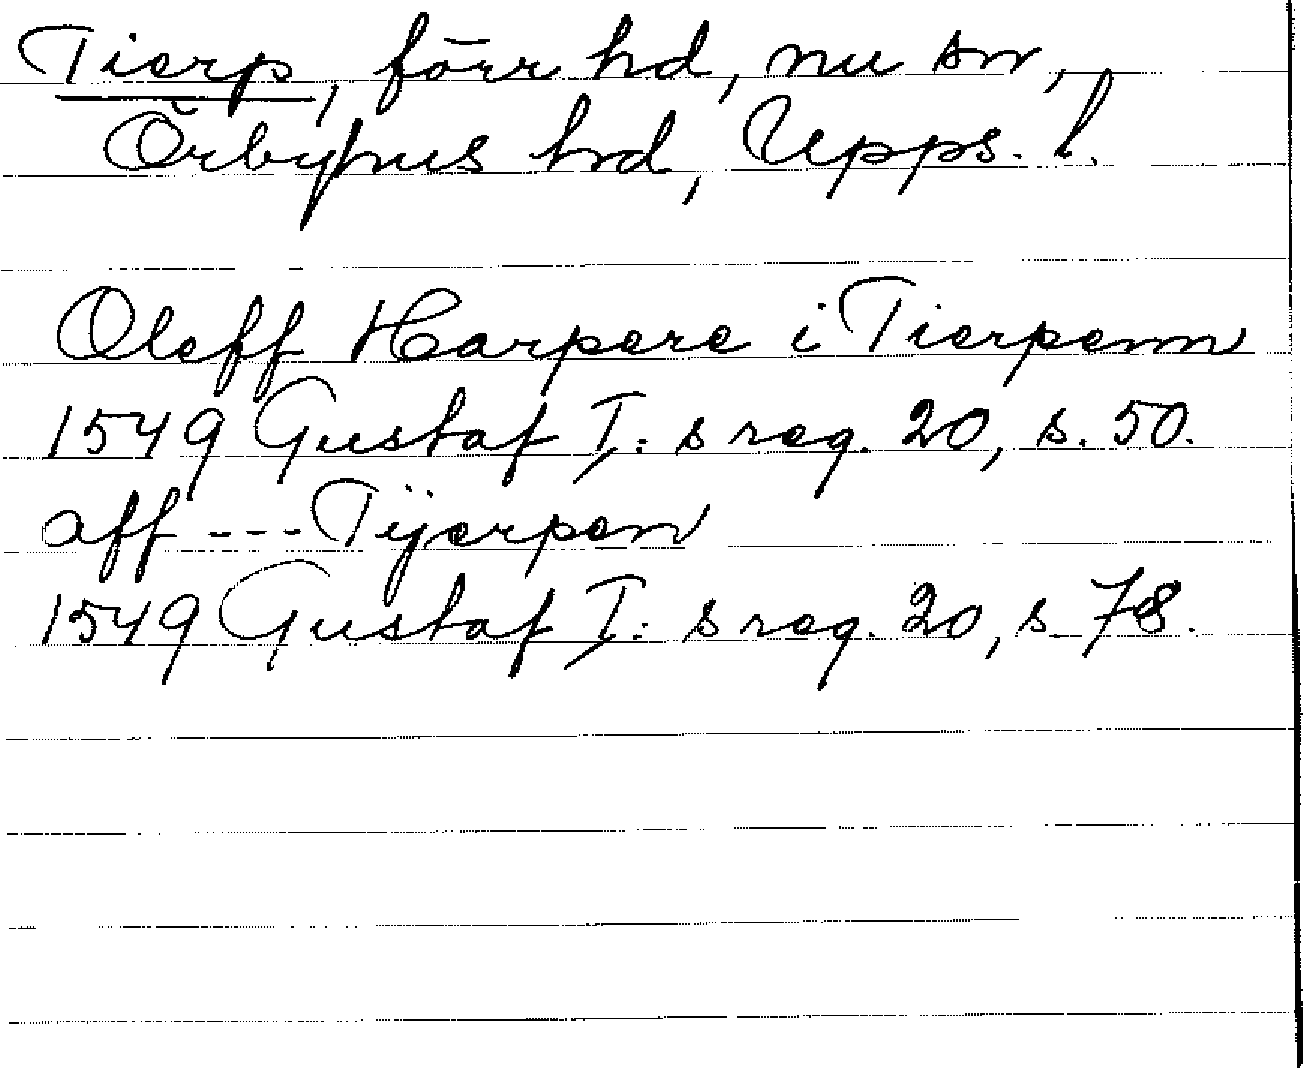 Tierp, förr hd, nu sn,
Örbyhus hd, Upps. l.
Oleff Harpere i Tierpenn
1549 Gustaf I: s reg. 20, s. 50.
aff --- Tijerpen
1549 Gustaf I: s reg. 20, s. 78.